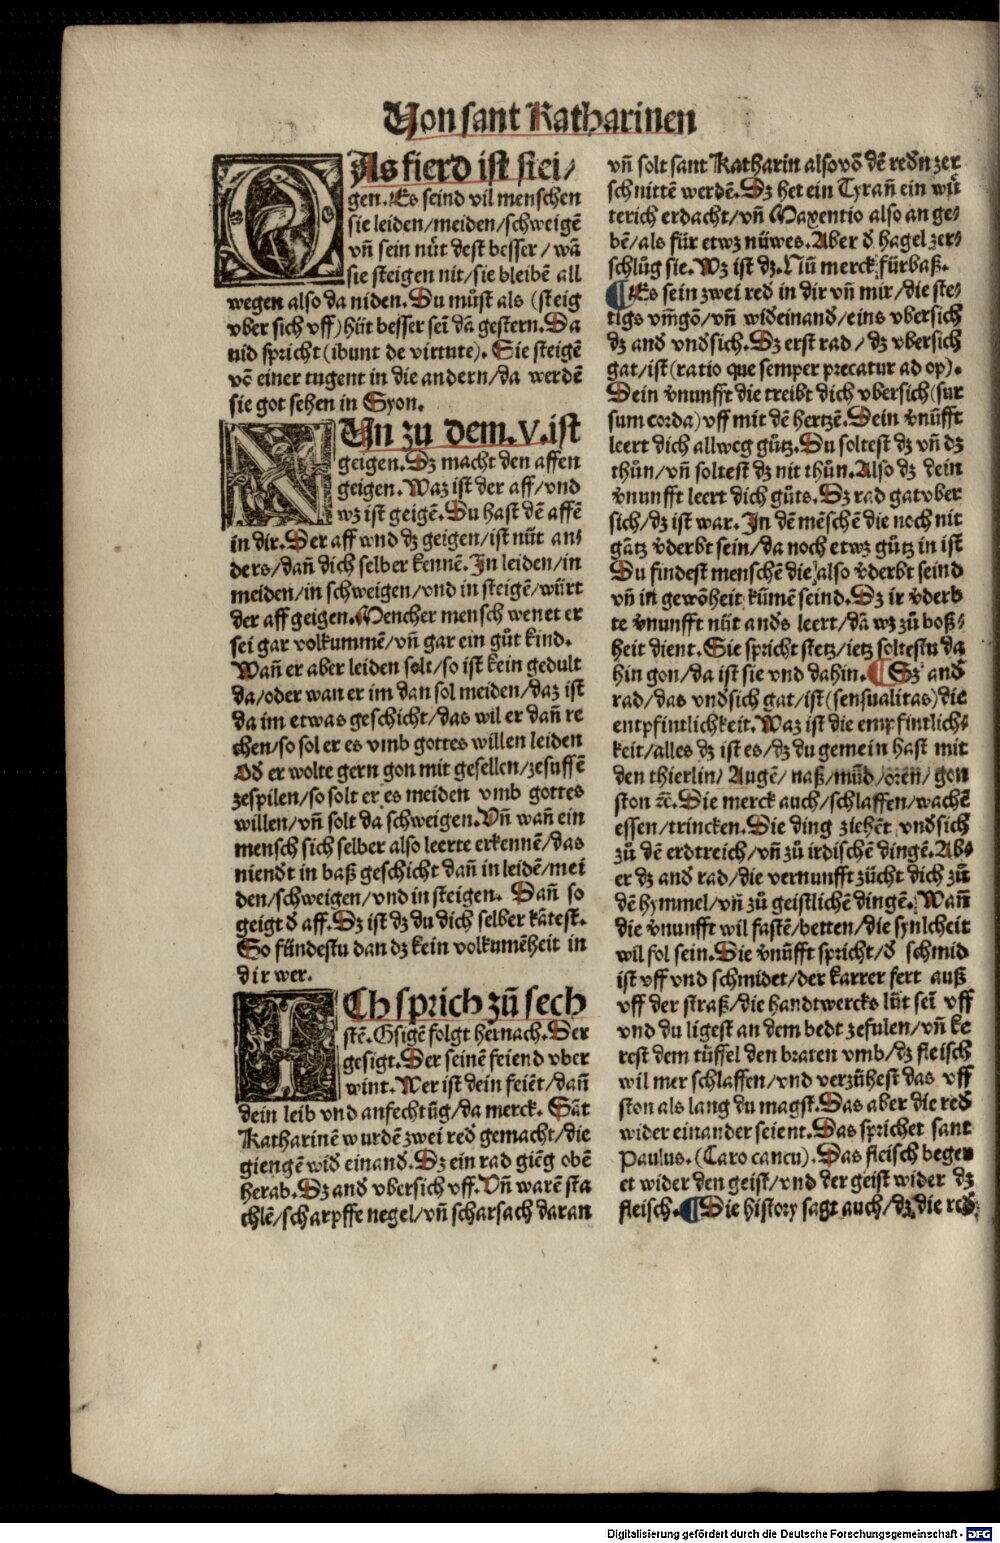 Von sant Katharinen
DAs fierd ist stei/
gen. Es seind vil menschen
sie leiden/meiden/schweigẽ
vñ sein nüt dest besser/wã
sie steigen nit/sie bleibẽ all
wegen also da niden. Du můst als (steig
vber sich vff) hüt besser sei͂ dã gestern. Da
uid spricht (ibunt de virtute). Sie steigẽ
võ einer tugent in die andern/da werdẽ
sie got sehen in Syon.
NUn zu dem. V. ist
geigen. Dz macht den affen
geigen. Waz ist der aff/vnd
wz ist geigẽ. Du hast dẽ affẽ
in dir. Der aff vnd dz geigen/ist nüt an/
ders/dañ dich selber kennẽ. In leiden/in
meiden/in schweigen/vnd in steigẽ/würt
der aff geigen. Mencher mensch wenet er
sei gar volkummẽ/vñ gar ein gůt kind.
Wañ er aber leiden solt/so ist kein gedult
da/oder wan er im dan sol meiden/daz ist
da im etwas geschicht/das wil er dañ re
chen/so sol er es vmb gottes willen leiden
Od̃ er wolte gern gon mit gesellen/zesuffẽ
zespilen/so solt er es meiden vmb gottes
willen/vñ solt da schweigen. Vñ wañ ein
mensch sich selber also leerte erkennẽ/das
niendt in baß geschicht dañ in leidẽ/mei
den/schweigen/vnd in steigen. Dañ so
geigt d̃ aff. Dz ist dz du dich selber kãtest.
So fündestu dan dz kein volkumẽheit in
dir wer.
ICh sprich zů sech
stẽ. Gsigẽ folgt hernach. Der
gesigt. Der seinẽ feiend vber
wint. Wer ist dein feiẽt/dañ
dein leib vnd anfechtũg/da merck. Sãt
Katharinẽ wurdẽ zwei red̃ gemacht/die
giengẽ wid̃ einand̃. Dz ein rad giẽg obẽ
herab. Dz and̃ vbersich vff. Vñ warẽ sta
chlẽ/scharpffe negel/vñ scharsach daran
vñ solt sant Katharin also võ dẽ red̃n zer
schnittẽ werdẽ. Dz het ein Tyrañ ein wü
terich erdacht/vñ Maxentio also an ge/
bẽ/als für etwz nüwes. Aber d̃ hagel zer/
schlůg sie. Wz ist dz. Nũ merck fürbaß.
¶Es sein zwei red in dir vñ mir/die ste/
tigs vm̃gõ/vñ wid̃einand̃/eins vbersich
dz and̃ vnd̃sich. Dz erst rad/dz vbersich
gat/ist (ratio que semper precatur ad op).
Dein v̾nunfft die treibt dich vbersich (sur
sum corda) vff mit dẽ hertzẽ. Dein v̾nũfft
leert dich allweg gůtz. Du soltest dz vñ dz
thůn/vñ soltest dz nit thůn. Also dz dein
v̾nunfft leert dich gůts. Dz rad gat vber
sich/dz ist war. In dẽ mẽschẽ die noch nit
gãtz v̾derbt sein/da noch etwz gůtz in ist
Du findest menschẽ die also v̾derbt seind
vñ in gewõheit kũmẽ seind. Dz ir v̾derb
te v̾nunfft nüt and̃s leert/dã wz zů boß/
heit dient. Sie spricht stetz/ietz soltestu da
hin gon/da ist sie vnd dahin. ¶Dz and̃
rad/das vnd̃sich gat/ist (sensualitas) die
entpfintlichkeit. Waz ist die empfintlich/
keit/alles dz ist es/dz du gemein hast mit
den thierlin/Augẽ/naß/mũd/oren/gon
ston ꝛc̃. Die merck auch/schlaffen/wachẽ
essen/trincken. Die ding ziehẽt vnd̃sich
zů dẽ erdtreich/vñ zů irdischẽ dingẽ. Ab/
er dz and̃ rad/die vernunfft zücht dich zů
dẽ hymmel/vñ zů geistlichẽ dingẽ. Wañ
die v̾nunfft wil fastẽ/betten/die synlcheit
wil fol sein. Die v̾nũfft spricht/d̃ schmid
ist vff vnd schmidet/der karrer fert auß
vff der straß/die handtwercks lüt sei͂ vff
vnd du ligest an dem bedt zefulen/vñ ke
rest dem tüffel den braten vmb/dz fleisch
wil mer schlaffen/vnd verzühest das vff
ston als lang du magst. Das aber die red̃
wider einander seient. Das sprichet sant
Paulus. (Caro concu). Das fleisch beger
et wider den geist/vnd der geist wider dz
fleisch. ¶Die history sagt auch/dz die red̃
Digitalisierung gefördert durch die Deutsche Forschungsgemeinschaft - DFG